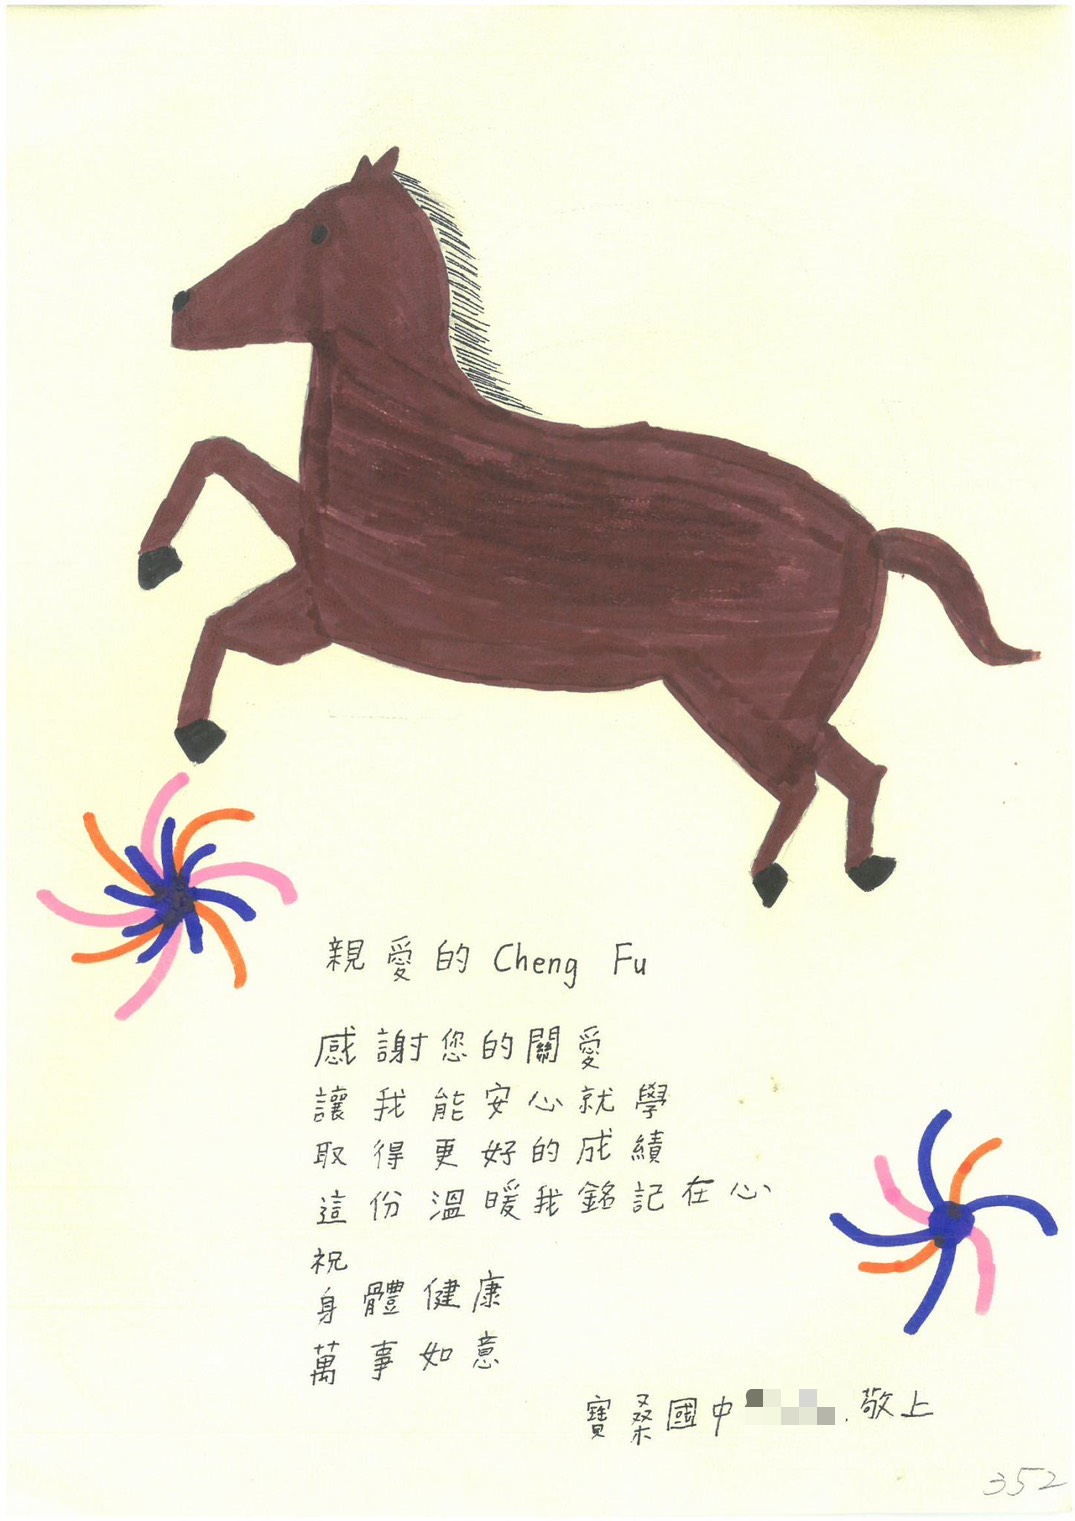 親愛的 Cheng Fu
感謝您的關愛
讓我能安心就學
取得更好的成績
這份溫暖我銘記在心
祝
身體健康
萬事如意
寶桑國中 . 敬上
352